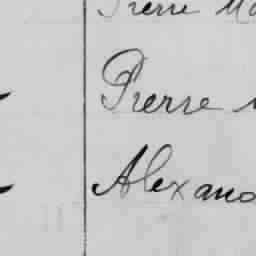 Pierre Ma
Pierre
Alexand